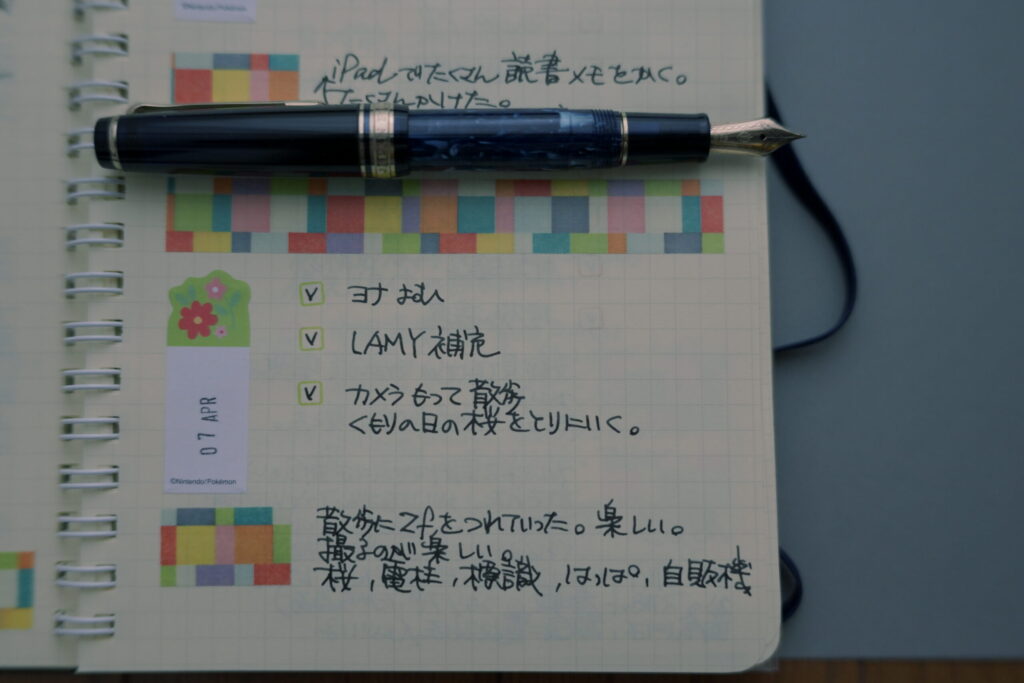 ©Nintendo/Pokémon
iPadでたくさん読書メモをかく。
たくさんかけた。
ヨナ よむ
LAMY 補充
カメラもって散歩
くもりの日の桜をとりにいく。
07 APR
©Nintendo/Pokémon
散歩にZfをつれていった。楽しい。
撮るのが楽しい。
桜,電柱,標識,はっぱ,自販機